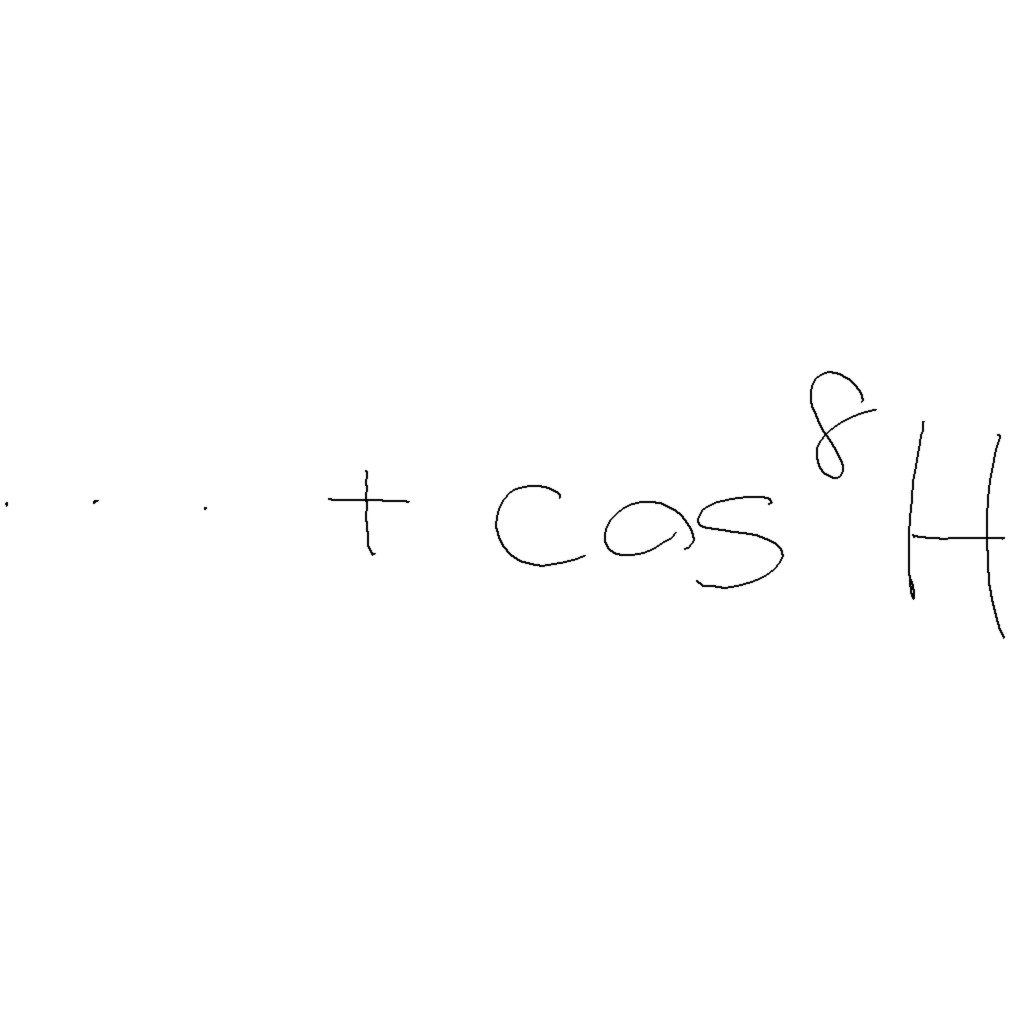 ... + cos⁸ H